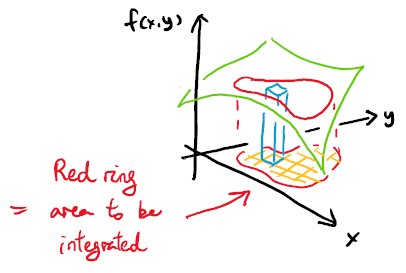 f(x,y)
y
Red ring
= area to be
integrated
x